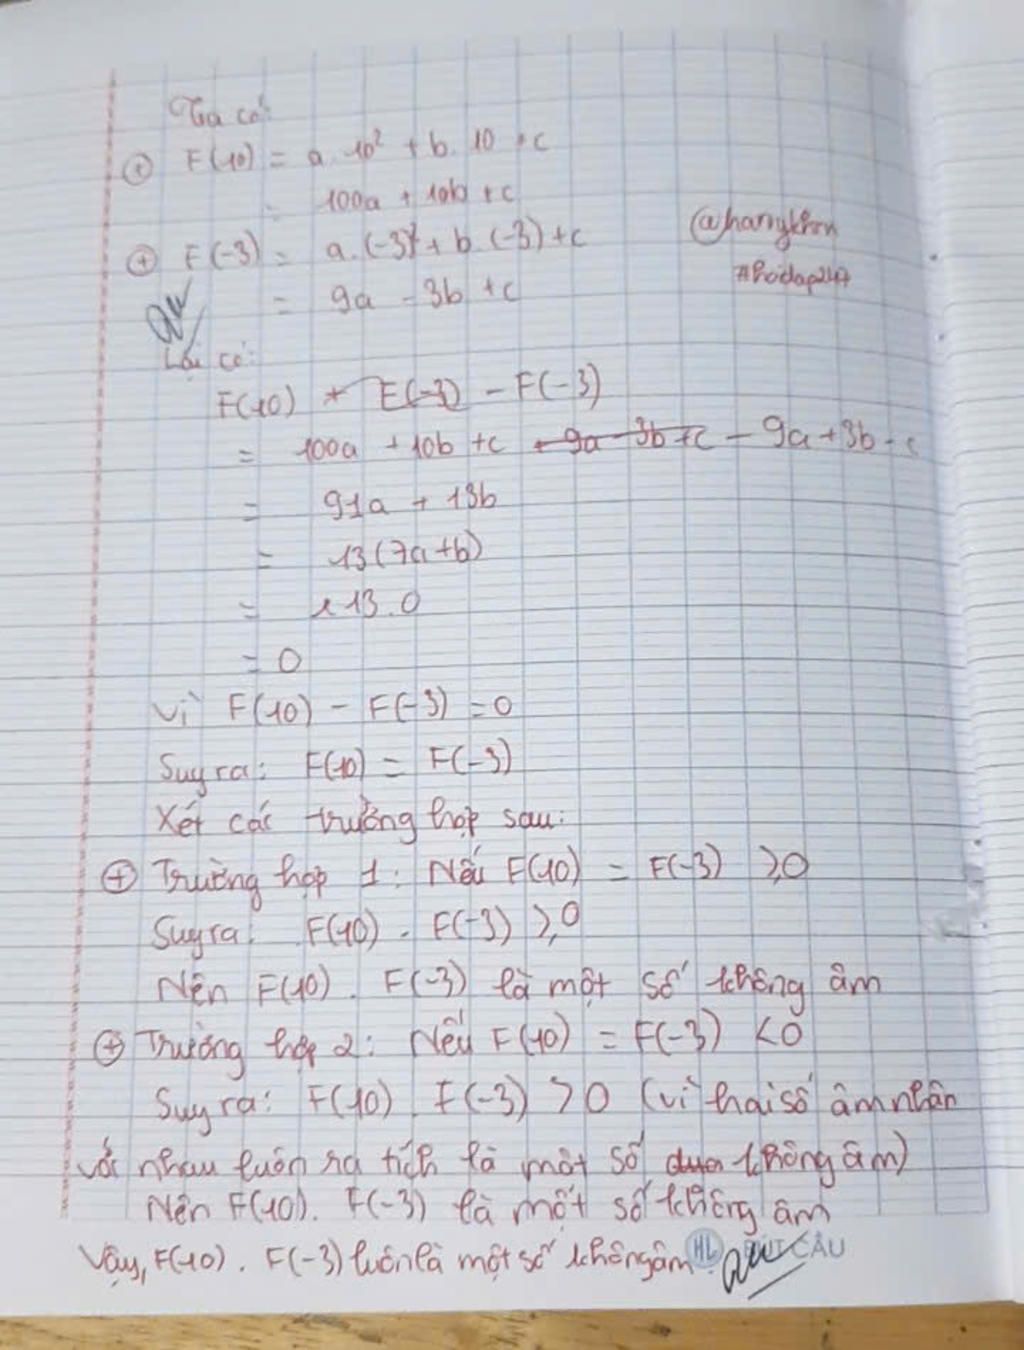 Ta có:
⊕ F(10) = a.10² + b.10 + c
= 100a + 10b + c
⊕ F(-3) = a.(-3)² + b.(-3) + c
= 9a - 3b + c
#hoidap247
Lại có:
F(10) - F(-3)
= 100a + 10b + c - 9a + 3b - c
= 91a + 13b
= 13(7a+b)
= 13.0
= 0
Vì F(10) - F(-3) = 0
Suy ra: F(10) = F(-3)
Xét các trường hợp sau:
⊕ Trường hợp 1: Nếu F(10) = F(-3) ≥ 0
Suy ra: F(10) . F(-3) ≥ 0
Nên F(10) . F(-3) là một số không âm
⊕ Trường hợp 2: Nếu F(10) = F(-3) < 0
Suy ra: F(10) . F(-3) > 0 (vì hai số âm nhân
với nhau luôn ra tích là một số không âm)
Nên F(10). F(-3) là một số không âm
Vậy, F(10) . F(-3) luôn là một số không âm. HL BÚT CÂU